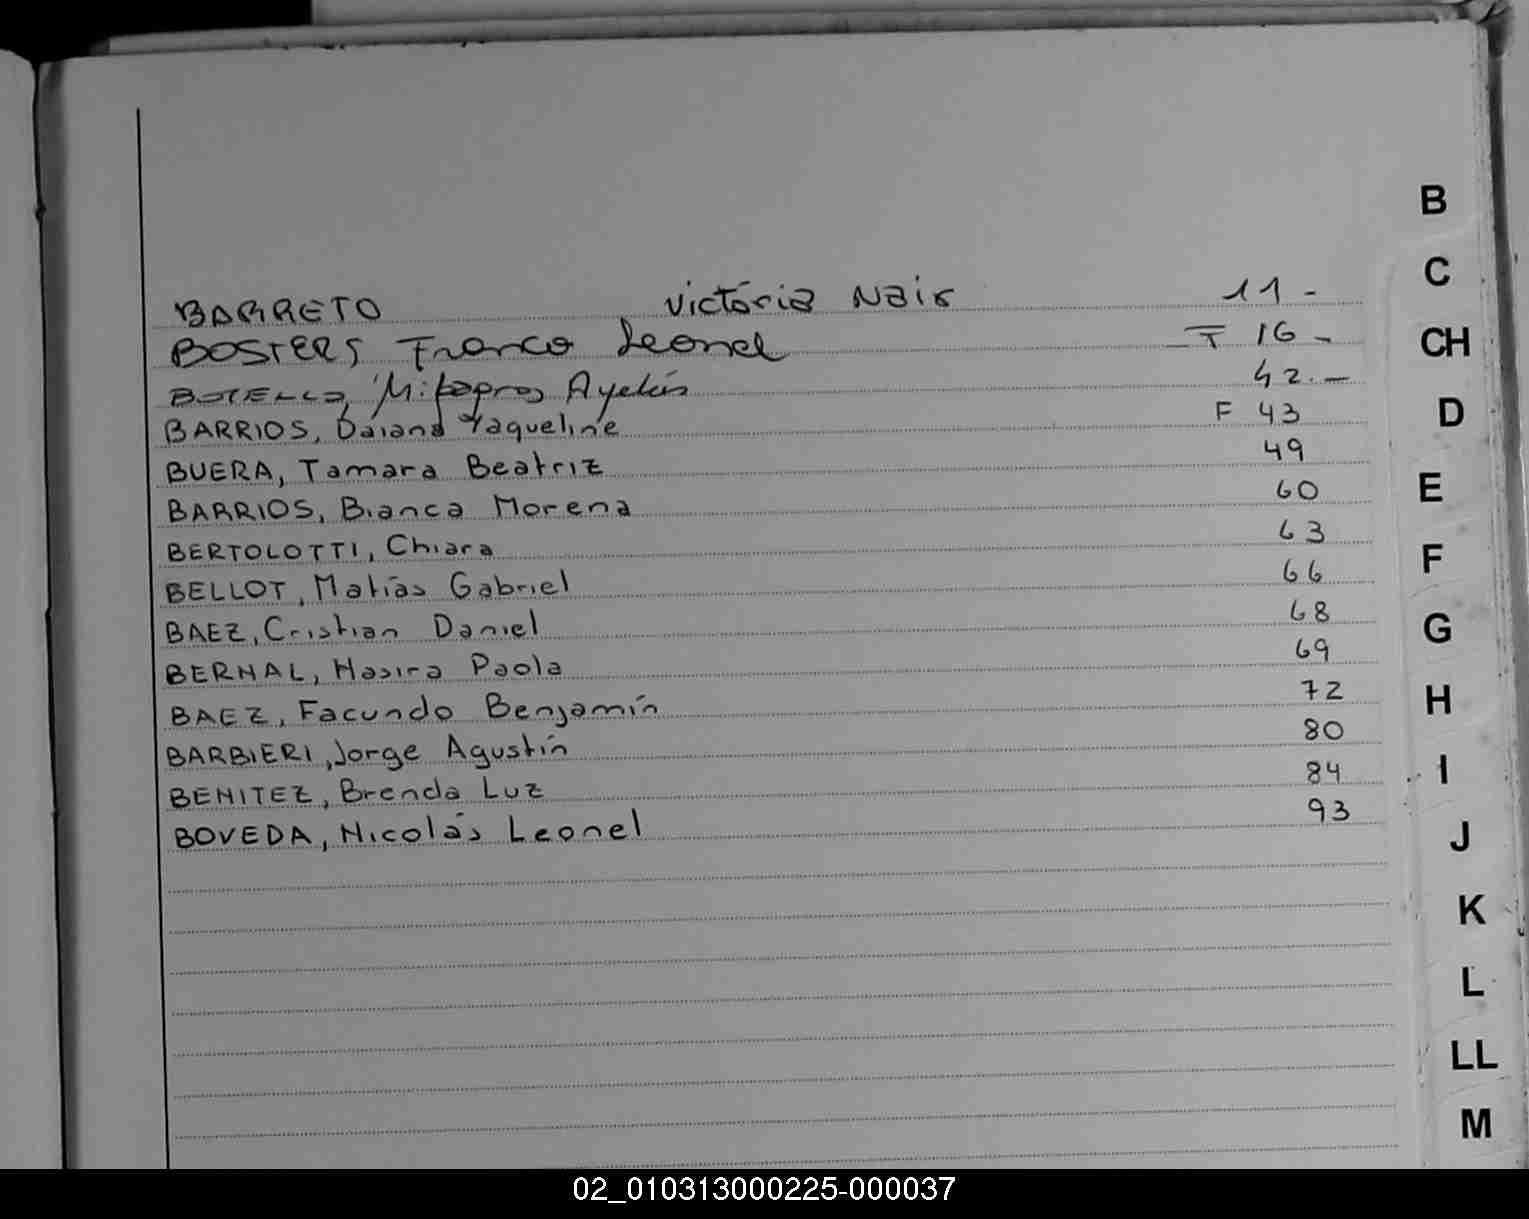 BARRETO Victória Nair 11 -
BOSTERS, Franco Leonel F 16 -
BOTELLO, Milagros Ayelén 42.-
BARRIOS, Daiana Yaqueline F 43
BUERA, Tamara Beatriz 49
BARRIOS, Bianca Morena 60
BERTOLOTTI, Chiara 63
BELLOT, Matías Gabriel 66
BAEZ, Cristian Daniel 68
BERNAL, Nasira Paola 69
BAEZ, Facundo Benjamín 72
BARBIERI, Jorge Agustín 80
BENITEZ, Brenda Luz 84
BOVEDA, Nicolás Leonel 93
B
C
CH
D
E
F
G
H
I
J
K
L
LL
M
02_010313000225-000037